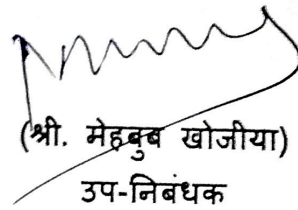 (श्री. मेहबुब खोजीया)
उप-निबंधक